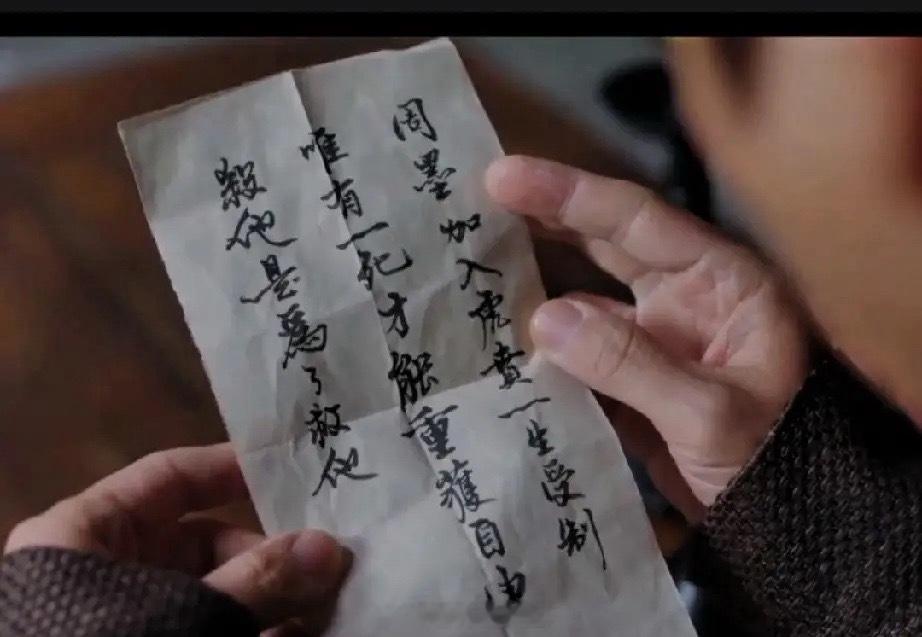 周墨加入虎賁一生受制
唯有一死才能重獲自由
殺他是為了救他